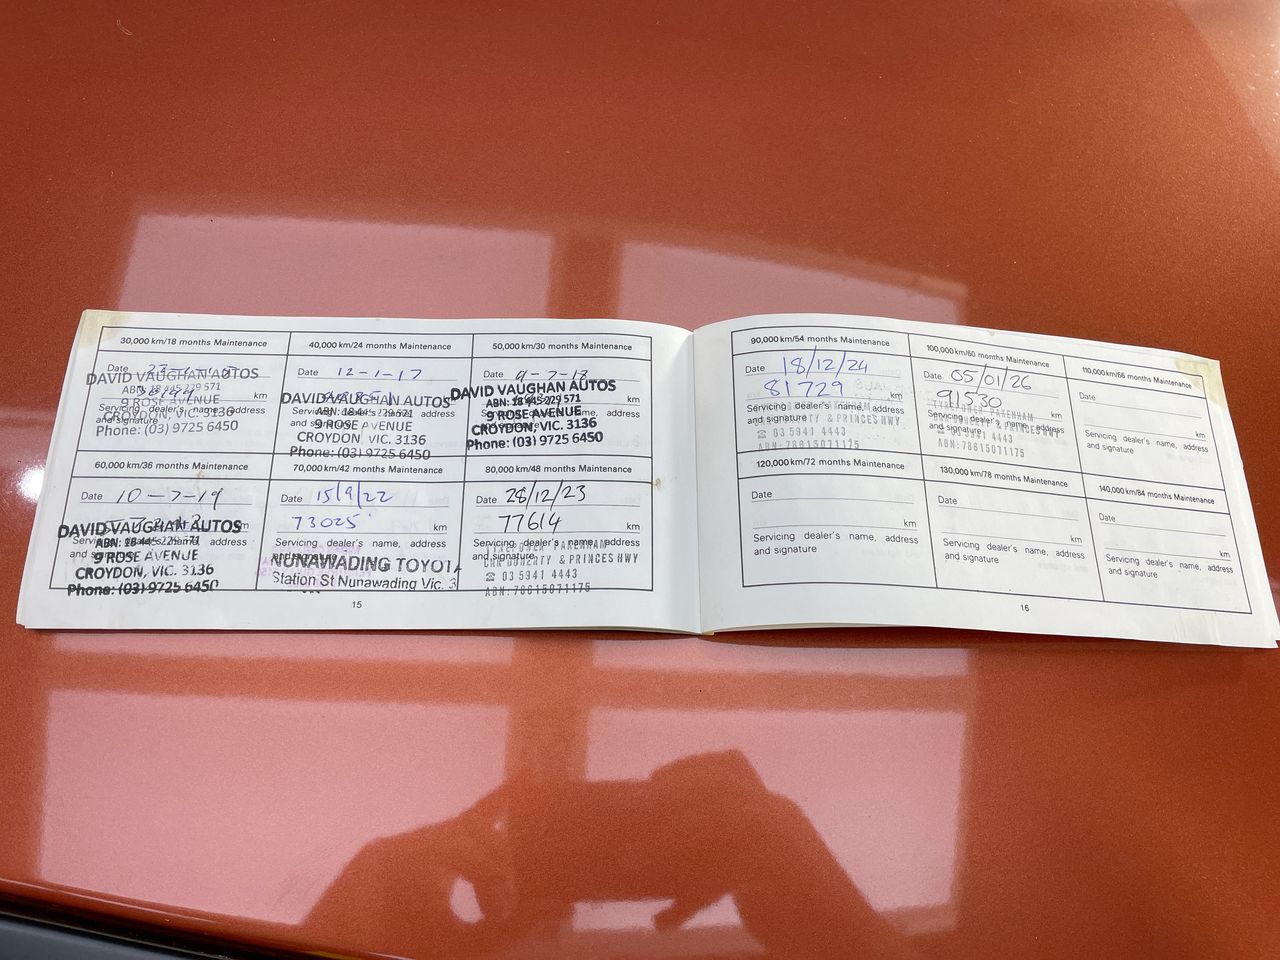 30,000 km/18 months Maintenance
Date
DAVID VAUGHAN AUTOS
ABN: 18 445 229 571
km
9 ROSE AVENUE
Servicing dealer's name, address
and signature
CROYDON, VIC. 3136
Phone: (03) 9725 6450
40,000 km/24 months Maintenance
Date 12-1-17
km
DAVID VAUGHAN AUTOS
ABN: 18 445 229 571
Servicing dealer's name, address
and signature
9 ROSE AVENUE
CROYDON, VIC. 3136
Phone: (03) 9725 6450
50,000 km/30 months Maintenance
Date 9-7-18
DAVID VAUGHAN AUTOS
ABN: 18 445 229 571
km
9 ROSE AVENUE
Servicing dealer's name, address
and signature
CROYDON, VIC. 3136
Phone: (03) 9725 6450
60,000 km/36 months Maintenance
Date 10-7-19
DAVID VAUGHAN AUTOS
km
ABN: 18 445 229 571
Servicing dealer's name, address
and signature
9 ROSE AVENUE
CROYDON, VIC. 3136
Phone: (03) 9725 6450
70,000 km/42 months Maintenance
Date 15/9/22
73025 km
Servicing dealer's name, address
and signature
NUNAWADING TOYOTA
Station St Nunawading Vic. 3
80,000 km/48 months Maintenance
Date 28/12/23
77614 km
Servicing dealer's name, address
and signature
TYREPOWER PAKENHAM
CNR DOHERTY & PRINCES HWY
☎ 03 5941 4443
ABN: 78615071175
15
90,000 km/54 months Maintenance
Date 18/12/24
81729 km
Servicing dealer's name, address
and signature
TYREPOWER PAKENHAM
CNR DOHERTY & PRINCES HWY
☎ 03 5941 4443
ABN: 78615071175
100,000 km/60 months Maintenance
Date 05/01/26
91530 km
TYREPOWER PAKENHAM
Servicing dealer's name, address
and signature
CNR DOHERTY & PRINCES HWY
☎ 03 5941 4443
ABN: 78615071175
110,000 km/66 months Maintenance
Date
km
Servicing dealer's name, address
and signature
120,000 km/72 months Maintenance
Date
km
Servicing dealer's name, address
and signature
130,000 km/78 months Maintenance
Date
km
Servicing dealer's name, address
and signature
140,000 km/84 months Maintenance
Date
km
Servicing dealer's name, address
and signature
16